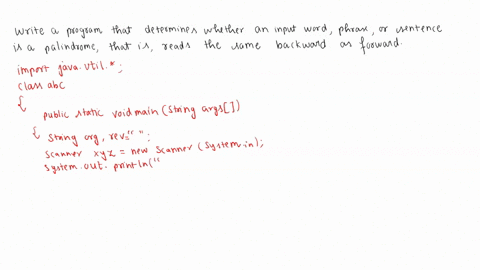 write a program that determines whether an input word, phrase, or sentence
is a palindrome, that is, reads the same backward as forward.
import java.util.*;
class abc
{
public static void main (String args[])
{ String org, rev=" ";
Scanner xyz = new Scanner (System.in);
System.out. println("